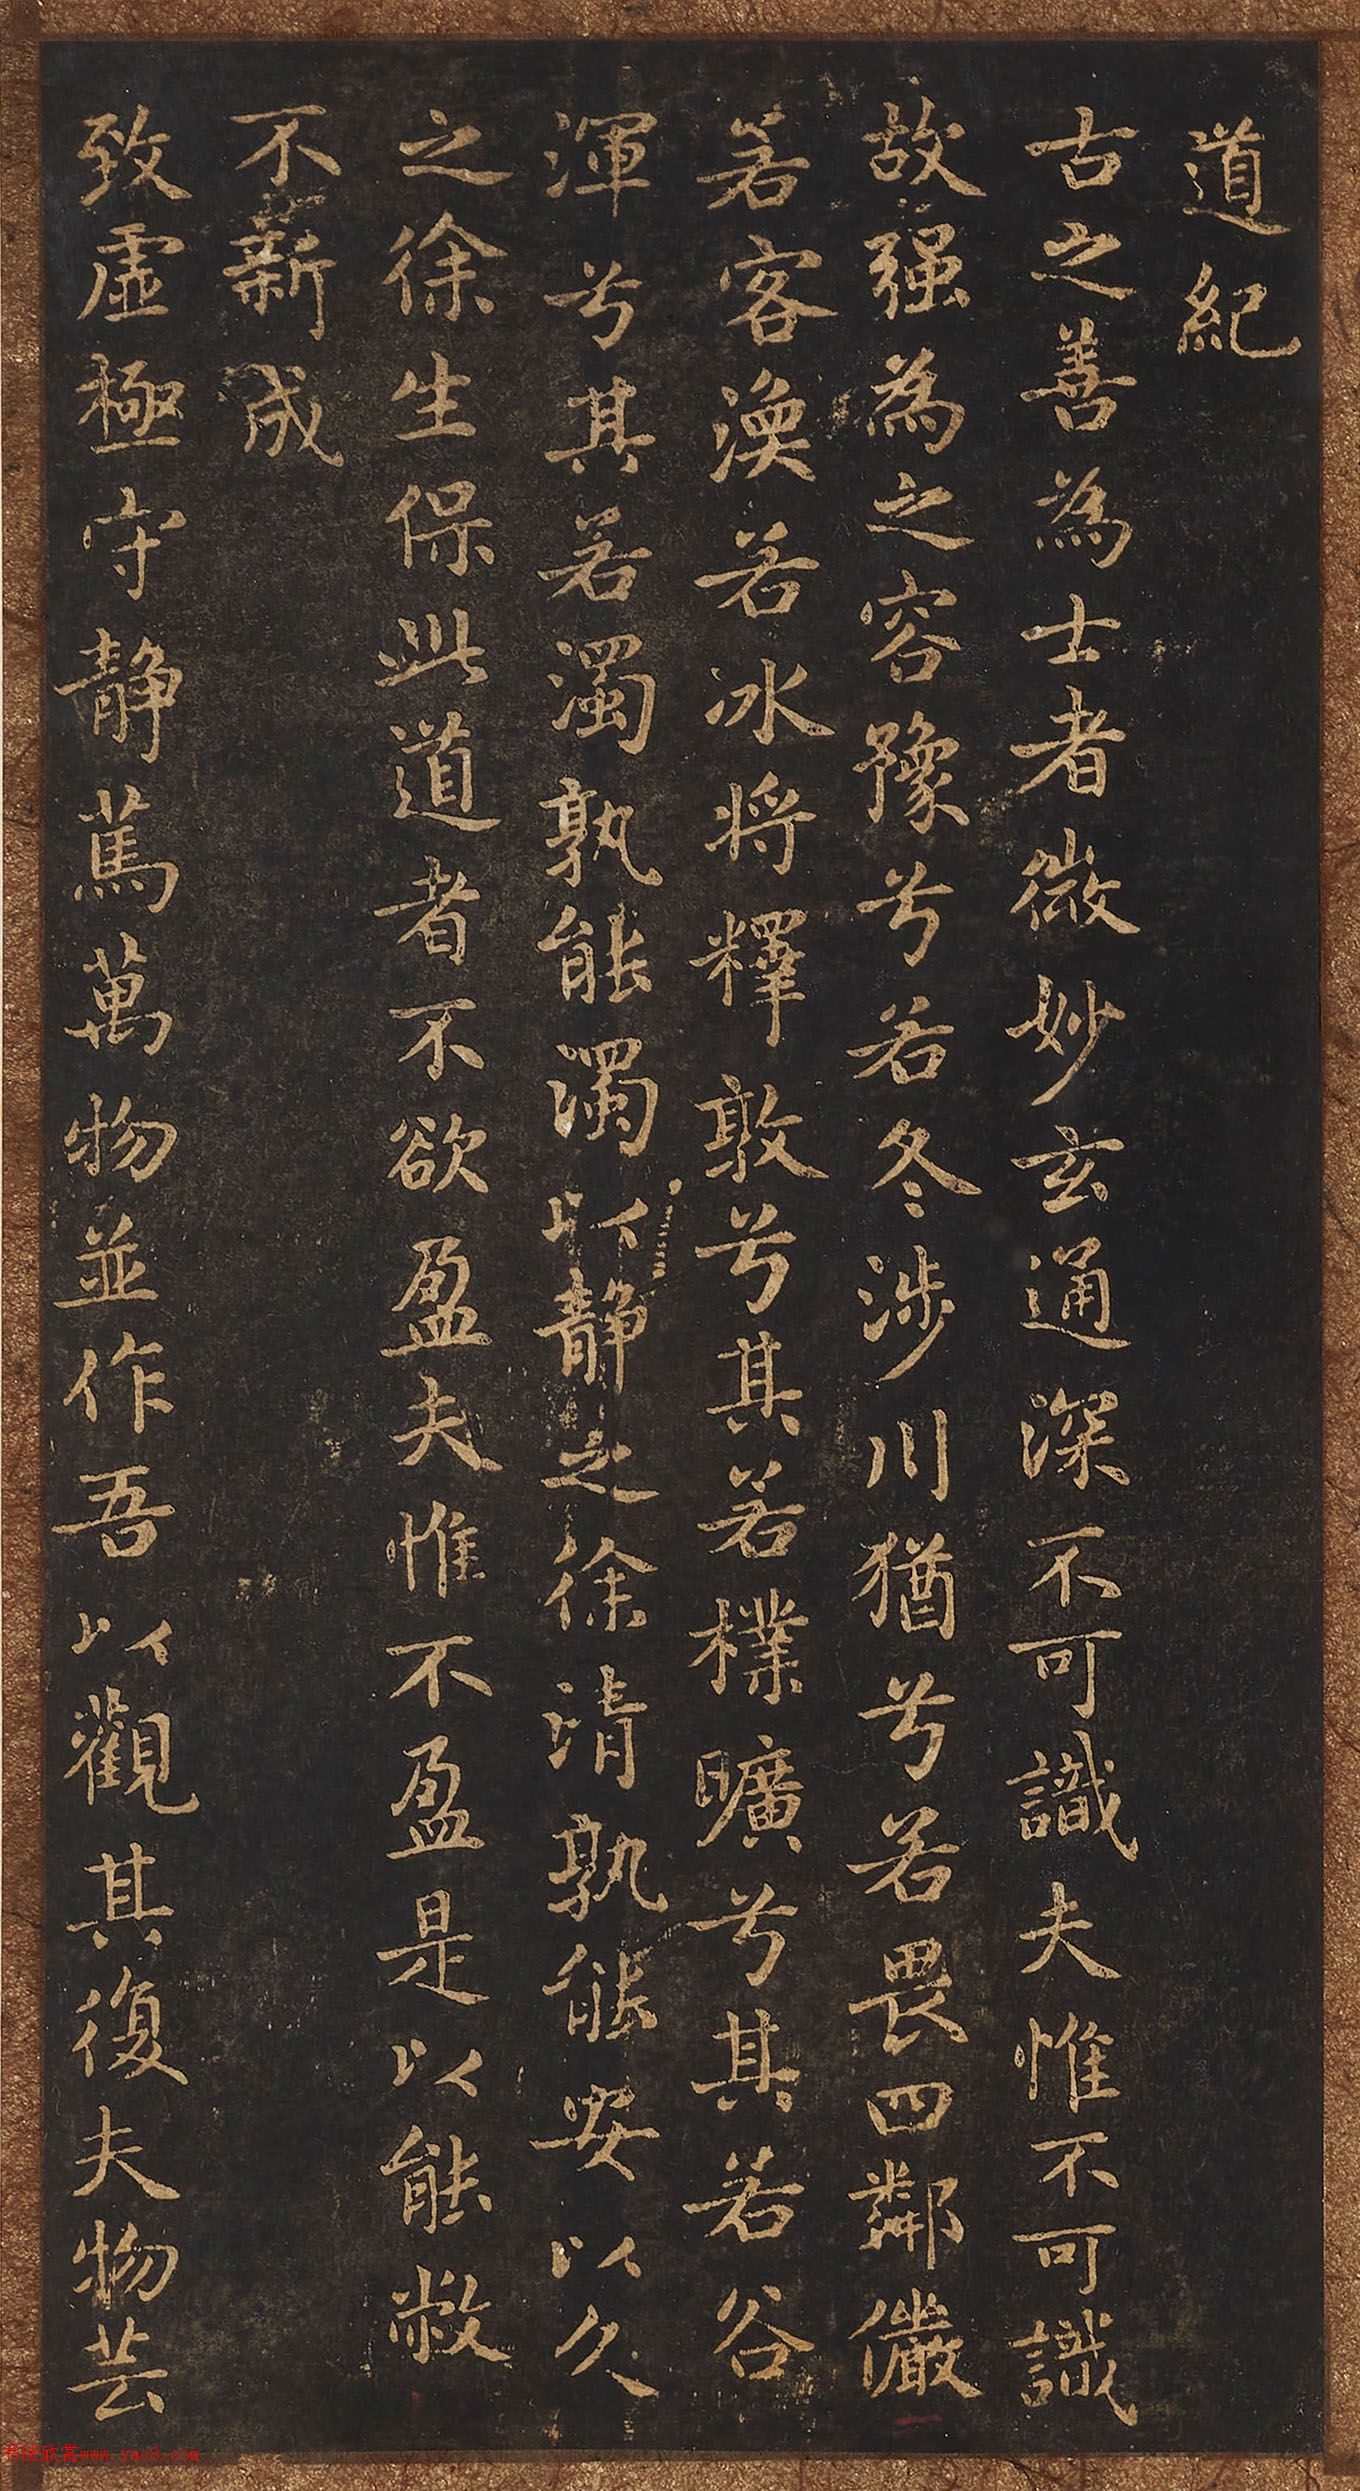 道紀
古之善為士者微妙玄通深不可識夫惟不可識
故强為之容豫兮若冬涉川猶兮若畏四鄰儼
若客渙若冰将釋敦兮其若樸曠兮其若谷
渾兮其若濁孰能濁以静之徐清孰能安以久
之徐生保此道者不欲盈夫惟不盈是以能敝
不新成
致虛極守静篤萬物並作吾以觀其復夫物芸
书法欣赏www.yac8.com